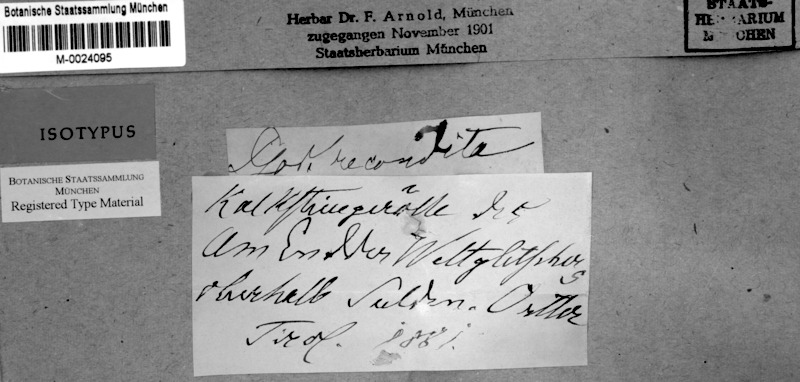 Botanische Staatssammlung München
M-0024095
Herbar Dr. F. Arnold, München
zugegangen November 1901
Staatsherbarium München
STAATS-
HERBARIUM
MÜNCHEN
ISOTYPUS
BOTANISCHE STAATSSAMMLUNG
MÜNCHEN
Registered Type Material
recondita
Kalksteingerölle des
am Ende der
oberhalb Sulden. Ortler
Tirol. 1881.